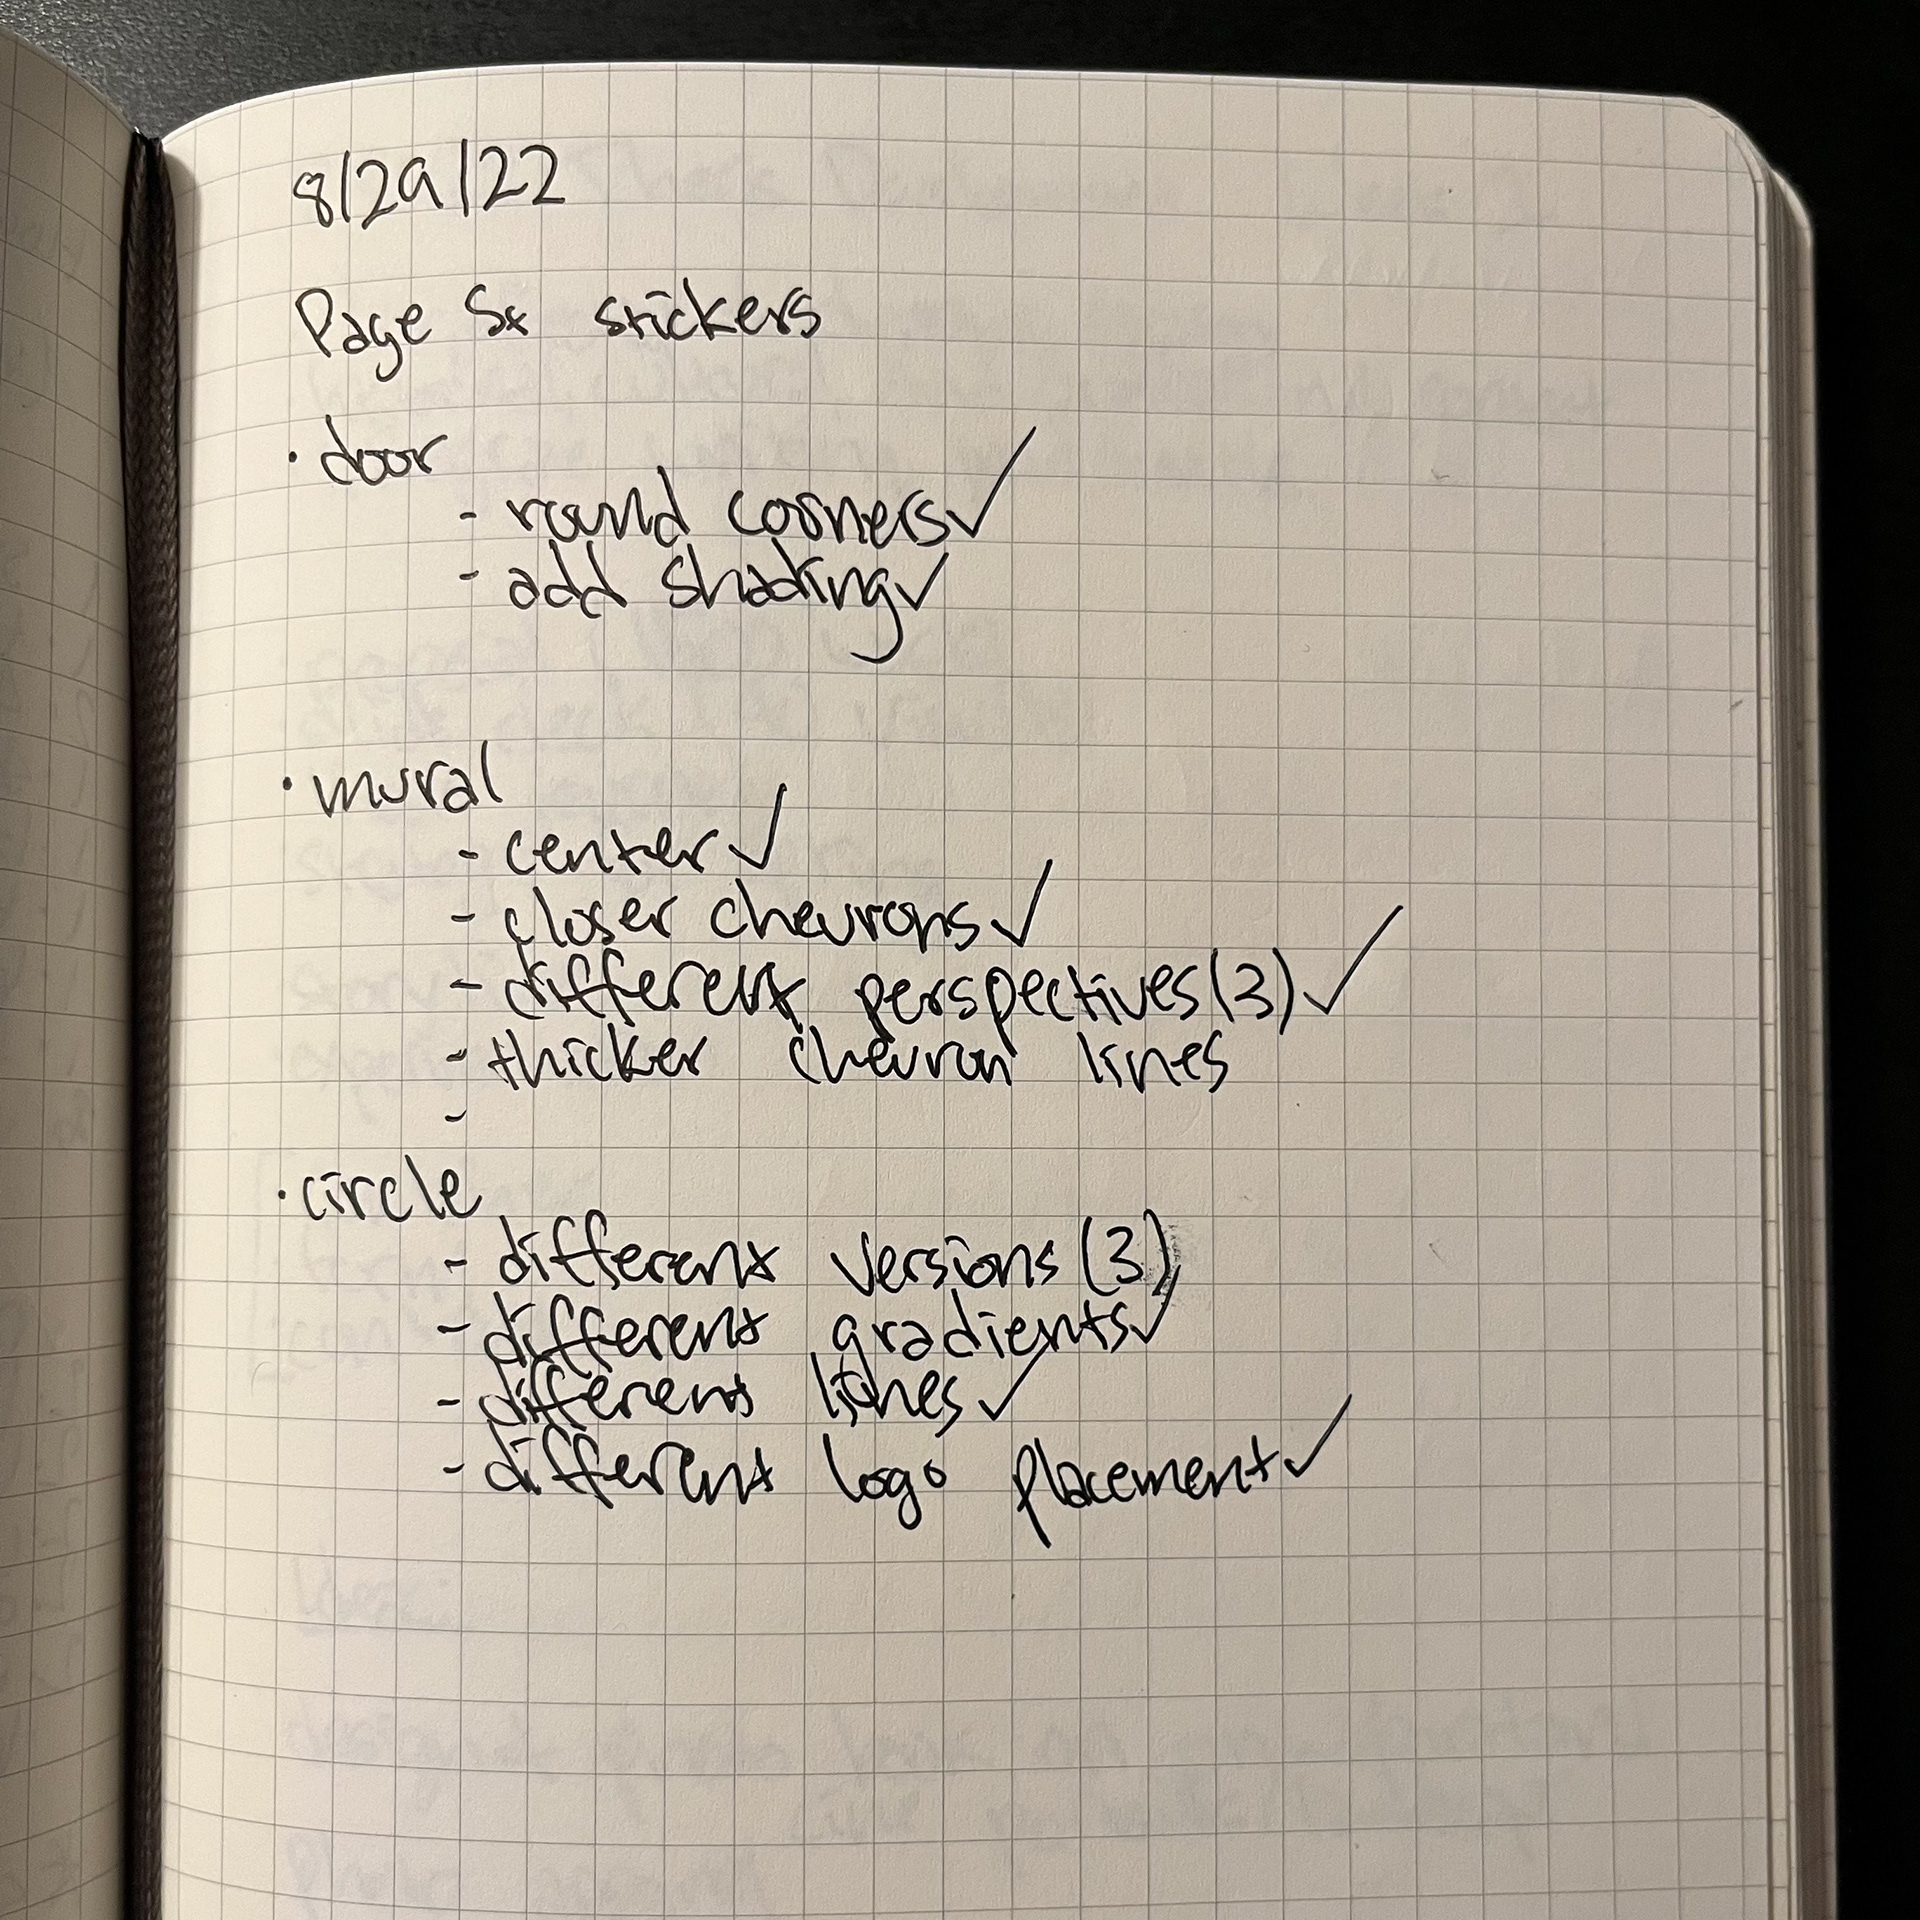 8/29/22
Page St stickers
· door
- round corners ✓
- add shading ✓
· mural
- center ✓
- closer chevrons ✓
- different perspectives (3) ✓
- thicker chevron lines
-
· circle
- different versions (3)
- different gradients ✓
- different lines ✓
- different logo placement ✓